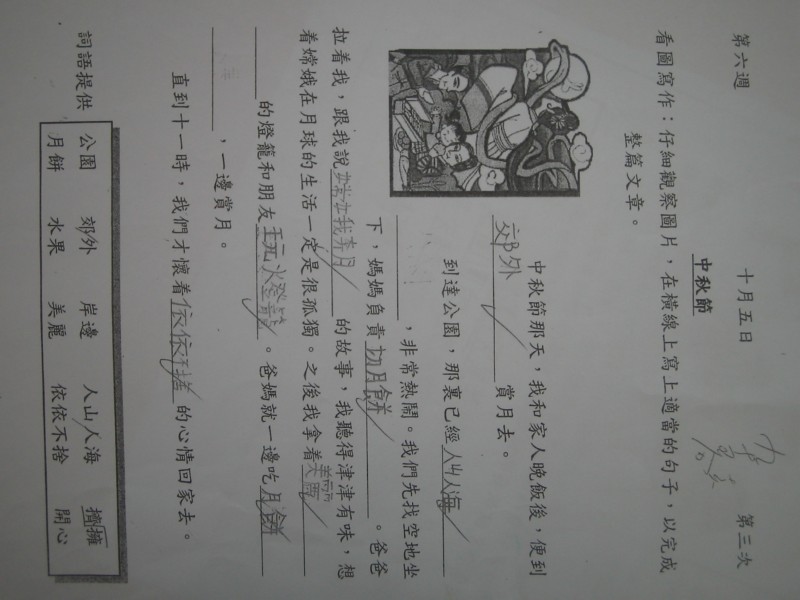 第六週 十月五日 第三次
看圖寫作：仔細觀察圖片，在橫線上寫上適當的句子，以完成
整篇文章。
中秋節
中秋節那天，我和家人晚飯後，便到
郊外賞月去。
到達公園，那裏已經人山人海
，非常熱鬧。我們先找空地坐
下，媽媽負責切月餅。爸爸
拉着我，跟我說奔月的故事，我聽得津津有味，想
着嫦娥在月球的生活一定是很孤獨。之後我拿着美麗
的燈籠和朋友玩火燈籠。爸媽就一邊吃月餅
，一邊賞月。
直到十一時，我們才懷着依依不捨的心情回家去。
詞語提供 公園 郊外 岸邊 人山人海 擠擁
月餅 水果 美麗 依依不捨 開心